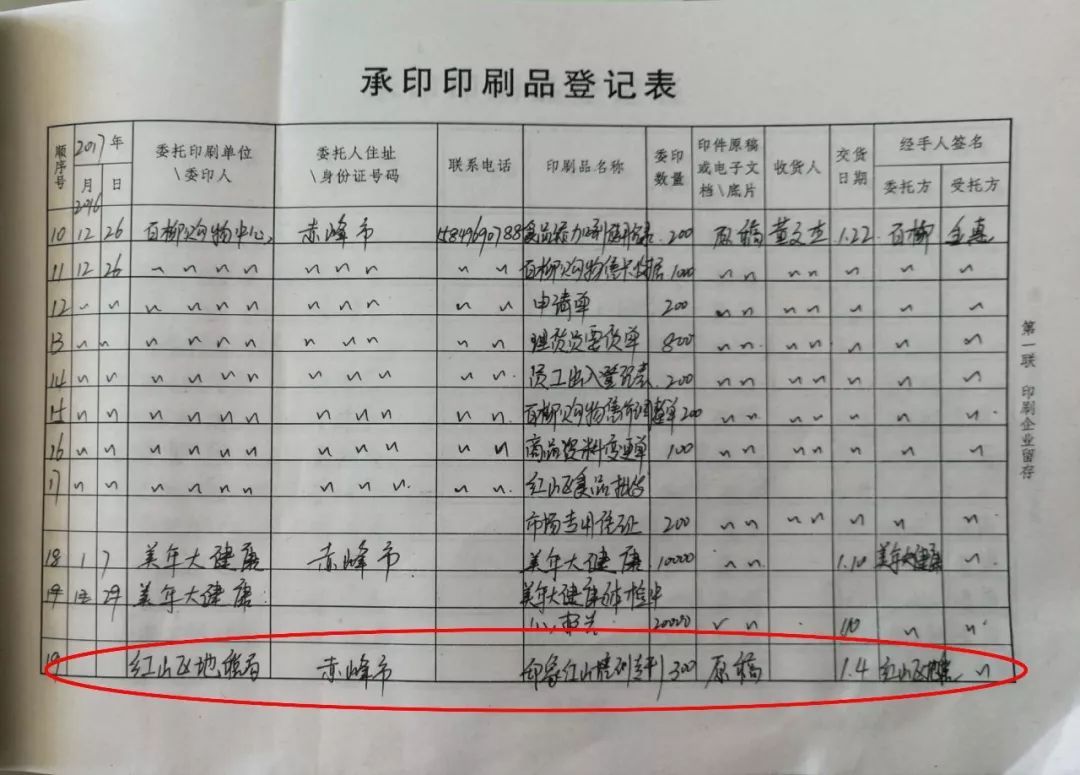 承印印刷品登记表
顺序号 2017年 月 日 委托印刷单位\委印人 委托人住址\身份证号码 联系电话 印刷品名称 委印数量 印件原稿或电子文档\底片 收货人 交货日期 经手人签名 委托方 受托方
2016
10 12 26 百柳购物中心 赤峰市 15849690788 食品添加剂使用 200 原稿 董文杰 1.22 百柳
11 12 26 〃 〃 〃 〃 〃 〃 〃 〃 〃 百柳购物 1000 〃 〃 〃 〃 〃 〃 〃
12 〃 〃 〃 〃 〃 〃 〃 〃 〃 〃 〃 申请单 200 〃 〃 〃 〃 〃 〃 〃
13 〃 〃 〃 〃 〃 〃 〃 〃 〃 〃 〃 理货员要货单 800 〃 〃 〃 〃 〃 〃 〃
14 〃 〃 〃 〃 〃 〃 〃 〃 〃 〃 〃 员工出入登记表 200 〃 〃 〃 〃 〃 〃 〃
15 〃 〃 〃 〃 〃 〃 〃 〃 〃 〃 〃 百柳购物售价调整单 200 〃 〃 〃 〃 〃 〃 〃
16 〃 〃 〃 〃 〃 〃 〃 〃 〃 〃 〃 商品资料变更单 100 〃 〃 〃 〃 〃 〃 〃
17 〃 〃 〃 〃 〃 〃 〃 〃 〃 〃 〃 红山区食品批发
市场专用凭证 200 〃 〃 〃 〃 〃 〃 〃
18 1 7 美年大健康 赤峰市 美年大健康 10000 〃 〃 1.10 美年大健康 〃
19 12 29 美年大健康 美年大健康体检中
心 20000 〃 〃 1.10 〃 〃
19 红山区地税局 赤峰市 印象红山 1300 原稿 1.4 红山区地税 〃
第一联 印刷企业留存